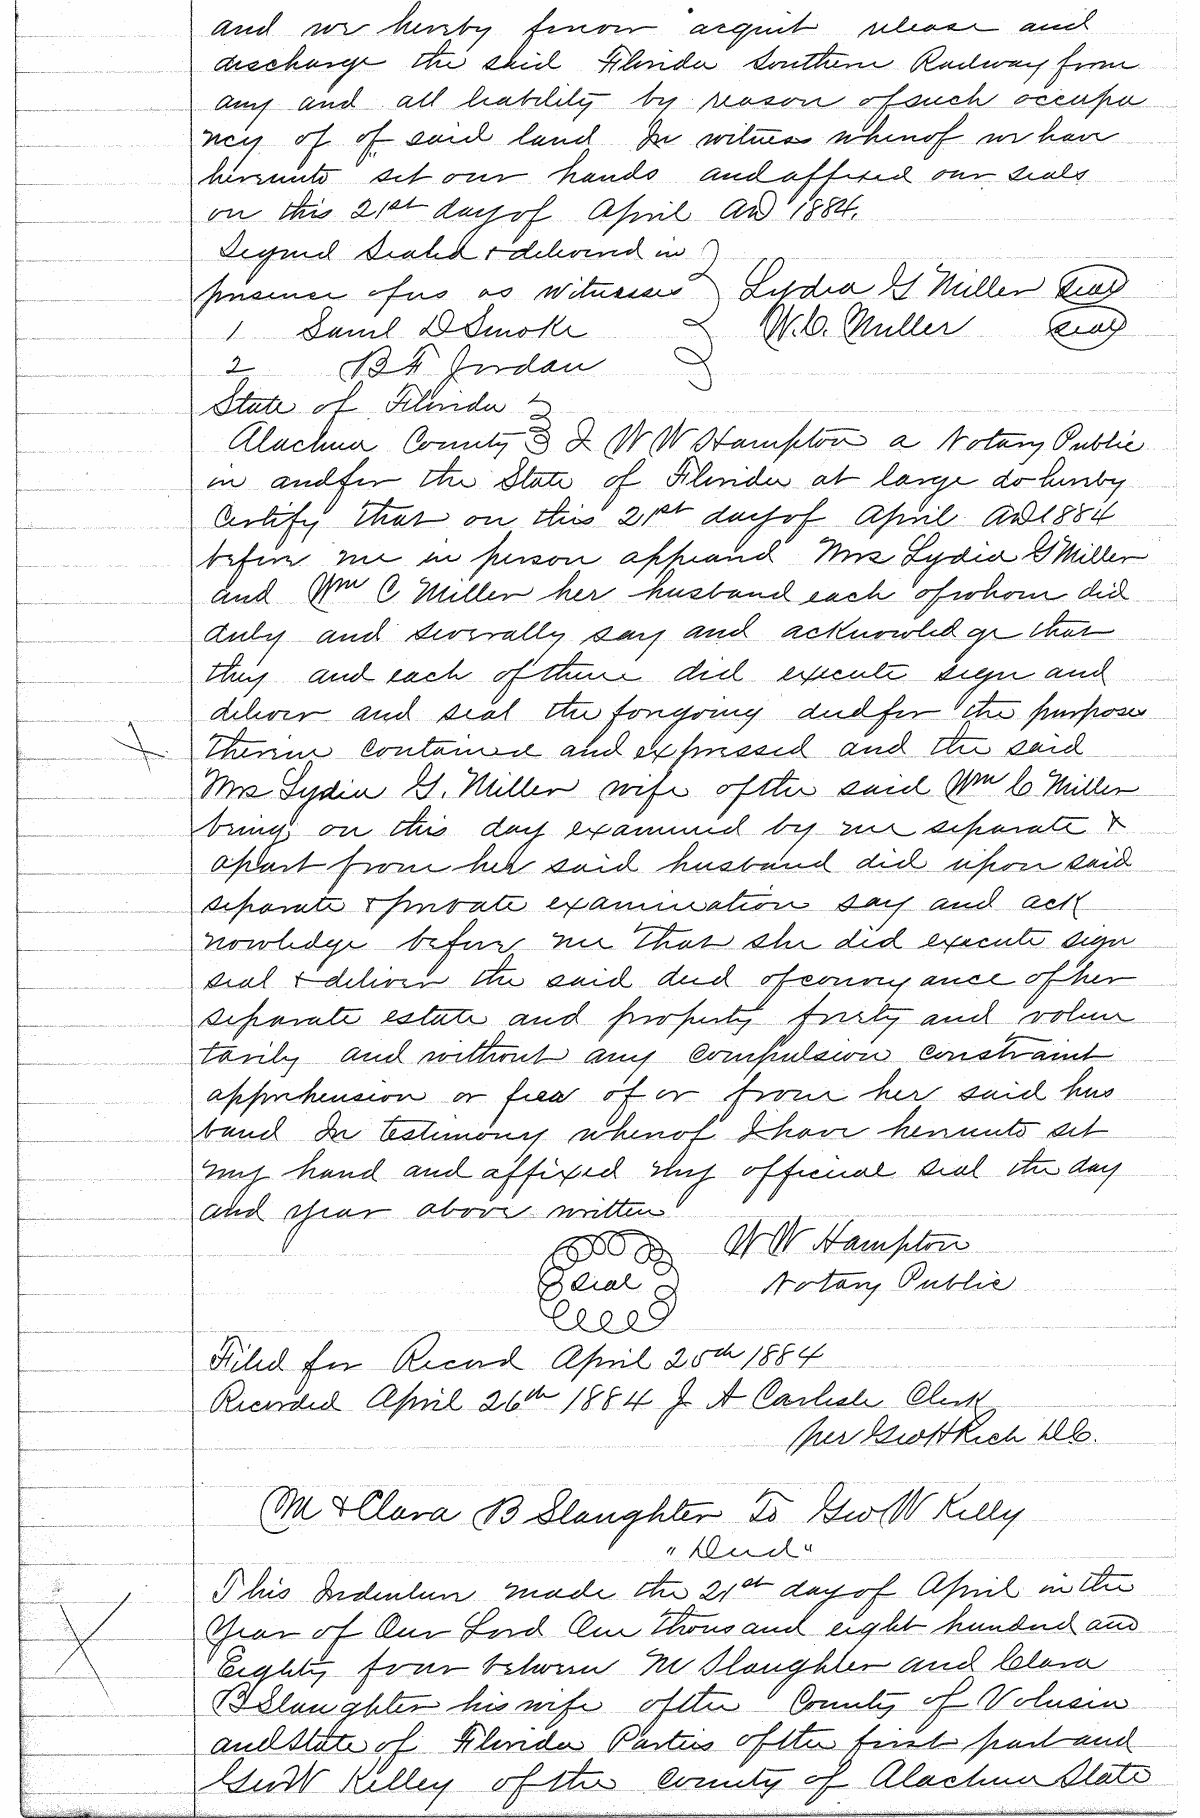 and we hereby forever acquit release and
discharge the said Florida Southern Railway from
any and all liability by reason of such occupa
ncy of of said land In witness whereof we have
hereunto set our hands and affixed our seals
on this 21st day of April AD 1884.
Signed Sealed & delivered in
presence of us as witnesses Lydia G Miller Seal
1 Saml D Smoke W. C. Miller Seal
2 B F Jordan
State of Florida
Alachua County I W W Hampton a Notary Public
in and for the State of Florida at large do hereby
Certify that on this 21st day of April AD 1884
before me in person appeared Mrs Lydia G Miller
and Wm C Miller her husband each of whom did
duly and severally say and acknowledge that
they and each of them did execute sign and
deliver and seal the foregoing deed for the purposes
therein contained and expressed and the said
Mrs Lydia G. Miller wife of the said Wm C Miller
being on this day examined by me separate &
apart from her said husband did upon said
separate & private examination say and ack
nowledge before me that she did execute sign
seal & deliver the said deed of conveyance of her
separate estate and property freely and volun
tarily and without any compulsion constraint
apprehension or fear of or from her said hus
band In testimony whereof I have hereunto set
my hand and affixed my official seal the day
and year above written
W W Hampton
Seal Notary Public
Filed for Record April 25th 1884
Recorded April 26th 1884 J A Carlisle Clerk
per Geo H Rich D C.
M & Clara B Slaughter To Geo W Kelly
"Deed"
This Indenture made the 21st day of April in the
Year of Our Lord One thousand eight hundred and
Eighty four between M Slaughter and Clara
B Slaughter his wife of the County of Volusia
and State of Florida Parties of the first part and
Geo W Kelley of the County of Alachua State